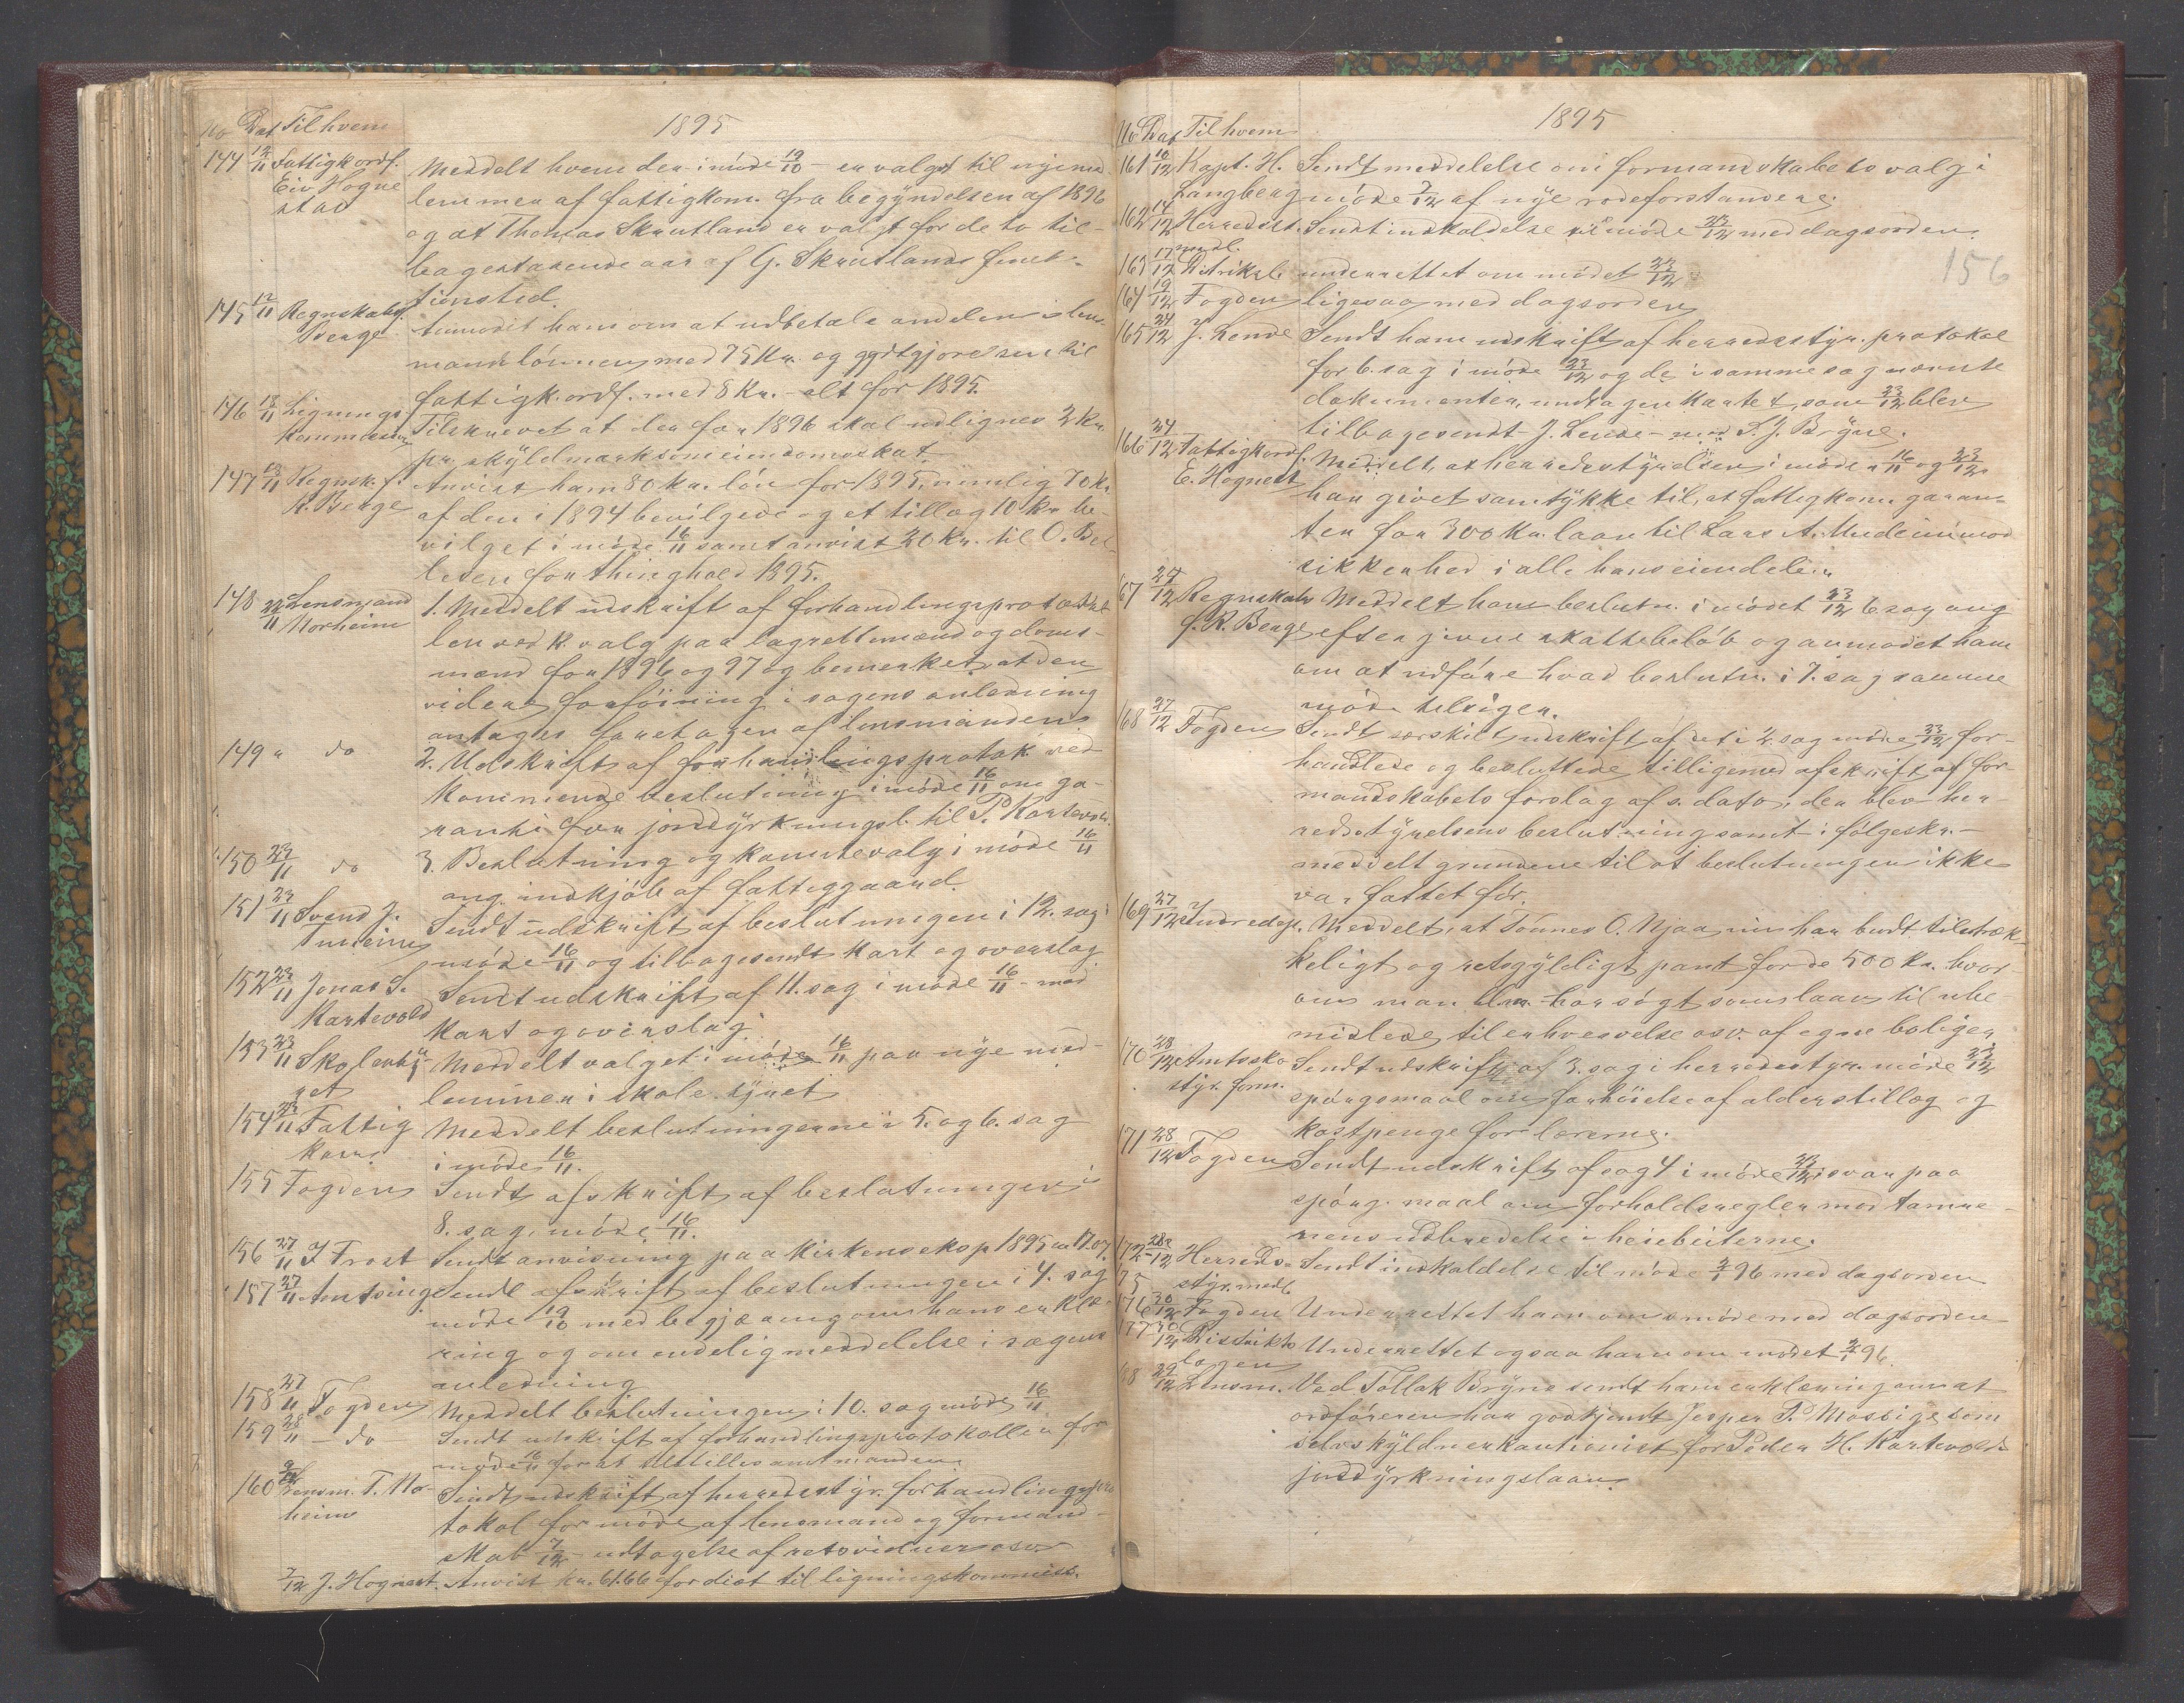 No Dat Til hvem 1895
144 12/11 Fattigkordf. Meddelt hvem der i møde 19/10 - er valgt til nye med
Eiv. Hogne lemmer af fattigkom. fra begyndelsen af 1896
stad og at Thomas Skrutland er valgt for de to til-
bagestaaende aar af G. Skrutlands funk-
tionstid.
145 12/11 Regnskabsf. Anmodet ham om at udbetale andelen i lens-
Berge mandslønnen med 75 Kr. og godtgjørelsen til
fattigk. ordf. med 8 Kr. - alt for 1895.
146 18/11 Lignings Tilskrevet at der for 1896 skal udlignes 2 kr.
kommissionen pr. skyldmark som eiendomsskat
147 18/11 Regnsk. f. Anvist ham 80 kr. løn for 1895, nemlig 70 kr.
R. Berge af den i 1894 bevilgede og et tillæg 10 kr. be-
vilget i møde 16/11 samt anvist 20 Kr. til O.
for thinghold 1895.
148 22/11 Lensmand 1. Meddelt udskrift af forhandlingsprotokol
Norheim len vedk. valg paa lagrettemænd og doms-
mænd for 1896 og 97 og bemerket, at den
videre forføining i sagens anledning
antages foretagen af lensmanden
149 " do 2. Udskrift af forhandlingsprotok. ved-
kommende beslutning i møde 16/11 om ga-
ranti for jorddyrkningsl. til P. Kartevold.
150 23/11 do 3. Beslutning og komitevalg i møde 16/11
ang. indkjøb af fattiggaard.
151 23/11 Svend J. Sendt udskrift af beslutningen i 12. sag i
Tunheim møde 16/11 og tilbagesendt kart og overslag
152 23/11 Jonas S. Sendt udskrift af 11. sag i møde 16/11 - med
Kartevold kart og overslag.
153 23/11 Skolesty- Meddelt valget i møde 16/11 paa nye med-
ret lemmer i skolestyret
154 23/11 Fattig Meddelt beslutningerne i 5. og 6. sag
kom. i møde 16/11.
155 Fogden Sendt afskrift af beslutningen i
8. sag, møde 16/11.
156 27/11 J Frost Sendt anvisning paa kirkens eksp 1895 17.07
157 27/11 Amtsing Sendt afskrift af beslutningen i 4. sag
møde 19/10 med begjæring om hans erklæ-
ring og om endelig meddelelse i sagens
anledning
158 27/11 Fogden Meddelt beslutningen i 10. sag møde 16/11
159 28/11 - do Sendt udskrift af forhandlingsprotokollen for
møde 16/11 for at tilstilles amtmanden.
160 9/12 Lensm. T. No- Sendt udskrift af herredsstyr. forhandlingspro
heim tokol for møde af lensmand og formand-
skab 7/12 - udtagelse af retsvidner osv
7/12 J. Hognest. Anvist kr. 61.66 for diæt til ligningskommiss.
No Dat Til hvem 1895
161 10/12 Kapt. H. Sendt meddelelse om formandskabets valg i
Langberg møde 7/12 af nye rodeforstandere.
162 14/12 Herredsst. Sendt indkaldelse til møde 23/12 med dagsorden.
medl.
156
163 17/12 underrettet om mødet 23/12
164 19/12 Fogden ligesaa med dagsorden
165 24/12 J. Lende Sendt ham udskrift af herredsstyr. protokol
for 6. sag i møde 23/12 og de i samme sag nævnte
dokumenter, undtagen kartet, som 23/12 blev
tilbagesendt J. Lende - med S. J. Bryne.
166 24/12 Fattigkordf. Meddelt, at herredsstyrelsen i møder 16/11 og 23/12
E. Hognest. har givet samtykke til, at fattigkom. garan-
ter for 300 Kr. laan til Lars A. Undeim mod
sikkerhed i alle hans eiendele.
67 27/12 Regnskabs Meddelt ham beslutn. i mødet 23/12 6 sag ang
f. R. Berge eftergivne skattebeløb og anmodet ham
om at udføre hvad beslutn. i 7. sag samme
møde tilsiger.
68 27/12 Fogden Sendt særskilt udskrift af det i 2. sag møde 23/12 for-
handlede og besluttede tilligemed afskrift af for-
mandskabets forslag af s. dato, der blev her-
redsstyrelsens beslutning samt i følgeskr. -
meddelt grundene til at beslutningen ikke
var fattet før.
169 27/12 Indredep. Meddelt, at Tønnes O. Njaa nu har budt tilstræk-
keligt og retsgyldigt pant for de 500 Kr. hvor-
om man har søgt som laan til ube-
midlede til erhvervelse osv. af egne boliger
170 28/12 Amtssko Sendt udskrift af 3. sag i herredsstyr. møde 23/12
styr. form. spørgsmaal om forhøielse af alderstillæg og
kostpenge for lærerne.
171 28/12 Fogden Sendt udskrift af sag 4 i møde 23/12 i svar paa
spørg. maal om forholdsregler mod tamre-
nens udbredelse i heiebeiterne.
172 28/12 Herreds- Sendt indkaldelse til møde 2/1 96 med dagsorden
75 styr. medl.
176 30/12 Fogden Underrettet ham om møde med dagsorden
177 30/12 Distrikts Underrettet ogsaa ham om mødet 2/1 96.
lægen
78 29/12 Lensm. Ved Tollak Bryne sendt ham erklæring om at
ordføreren har godkjendt Jesper P. Mossige som
selvskyldnerkautionist for Peder H. Kartevolds
jorddyrkningslaan.